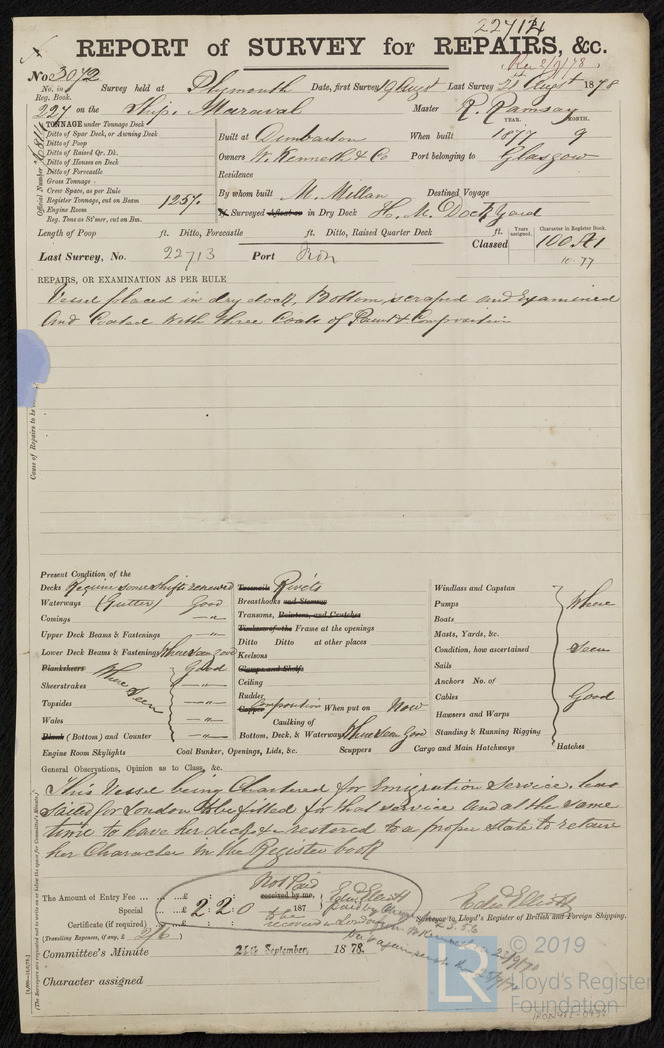 22714
REPORT of SURVEY for REPAIRS, &c.
No 3072
Survey held at Plymouth Date, first Survey 19 Augst Last Survey 21 Augst 1878
No. in Reg. Book.
227 on the Ship. Maraval Master R. Ramsay
TONNAGE under Tonnage Deck
Ditto of Spar Deck, or Awning Deck
Ditto of Poop
Ditto of Raised Qr. Dk.
Ditto of Houses on Deck
Ditto of Forecastle
Gross Tonnage
Crew Space, as per Rule
Register Tonnage, cut on Beam 1257.
Engine Room
Reg. Tons as St'mer, cut on Bm.
Official Number
YEAR. MONTH.
Built at Dumbarton When built 1877 9
Owners W. Kenneth & Co Port belonging to Glasgow
Residence
By whom built M. Millan Destined Voyage
If Surveyed Afloat or in Dry Dock H. M. Dock Yard
Length of Poop ft. Ditto, Forecastle ft. Ditto, Raised Quarter Deck ft.
Classed Years assigned. Character in Register Book. 100 A1
10.77
Last Survey, No. 22713 Port Iron
REPAIRS, OR EXAMINATION AS PER RULE
Vessel placed in dry dock, Bottom scraped and Examined
And Coated with three Coats of Paint & Composition
Cause of Repairs to be
Present Condition of the
Decks Require some shifts renewed
Waterways (Gutter) Good
Comings — " —
Upper Deck Beams & Fastenings — " —
Lower Deck Beams & Fastenings Where seen good
Planksheers Where Seen Good
Sheerstrakes — " —
Topsides — " —
Wales — " —
Plank (Bottom) and Counter — " —
Engine Room Skylights
Treenails Rivets
Breasthooks and Stemson
Transoms, Pointers, and Crutches
Timbers of the Frame at the openings
Ditto Ditto at other places
Keelsons
Clamps and Shelfs
Ceiling
Rudder
Copper Composition When put on Now
Caulking of
Bottom, Deck, & Waterways Where seen good
Coal Bunker, Openings, Lids, &c. Scuppers
Windlass and Capstan
Pumps Where
Boats
Masts, Yards, &c.
Condition, how ascertained Seen
Sails
Anchors No. of
Cables Good
Hawsers and Warps
Standing & Running Rigging
Cargo and Main Hatchways Hatches
General Observations, Opinion as to Class, &c.
This Vessel being Chartered for Emigration Service, has
sailed for London to be fitted for that service and at the same
time to have her deck &c restored to a proper state to retain
her Character in the Register book
The Amount of Entry Fee ... ... £
Special ... .. £ 2 2 0
Certificate (if required) ..
(Travelling Expenses, if any, £ 2/6 )
Not Paid
received by me,
187
to be
received in London
Edwd Elliott
Edwd Elliott
Surveyor to Lloyd's Register of British and Foreign Shipping.
Committee's Minute 24th September, 1878.
Character assigned
(The Surveyors are requested not to write on or below the space for Committee's Minute.)
© 2019
LR
Lloyd's Register
Foundation